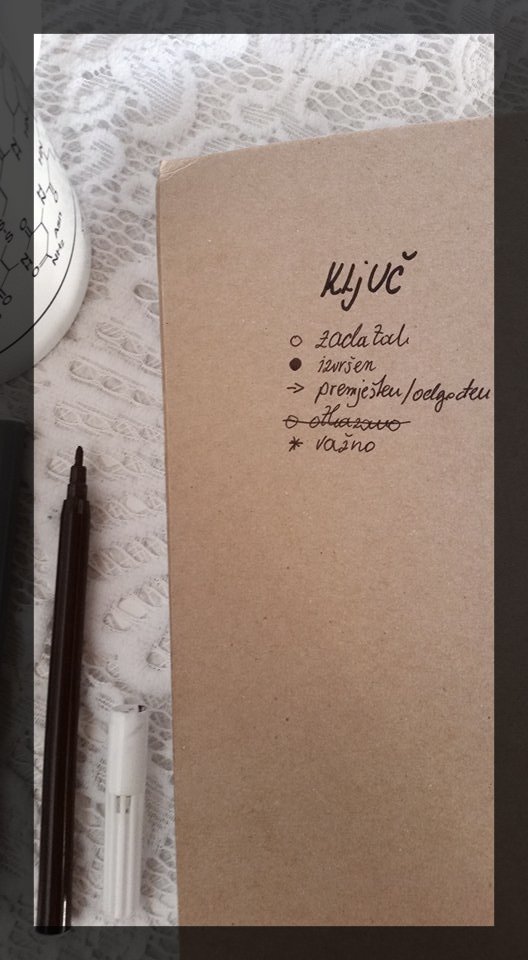 KLjUČ
○ zadatak
● izvršen
→ premješten/odgođen
○ otkazano
* važno